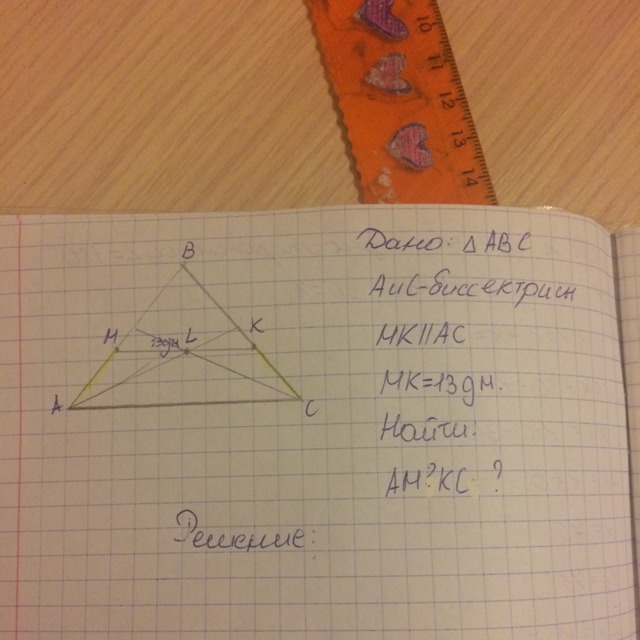 10
11
12
13
14
B
M
13дм
L
K
A
C
Дано: △ABC
A и C-биссектрисы
MK||AC
MK=13дм.
Найти:
AM? KC ?
Решение: